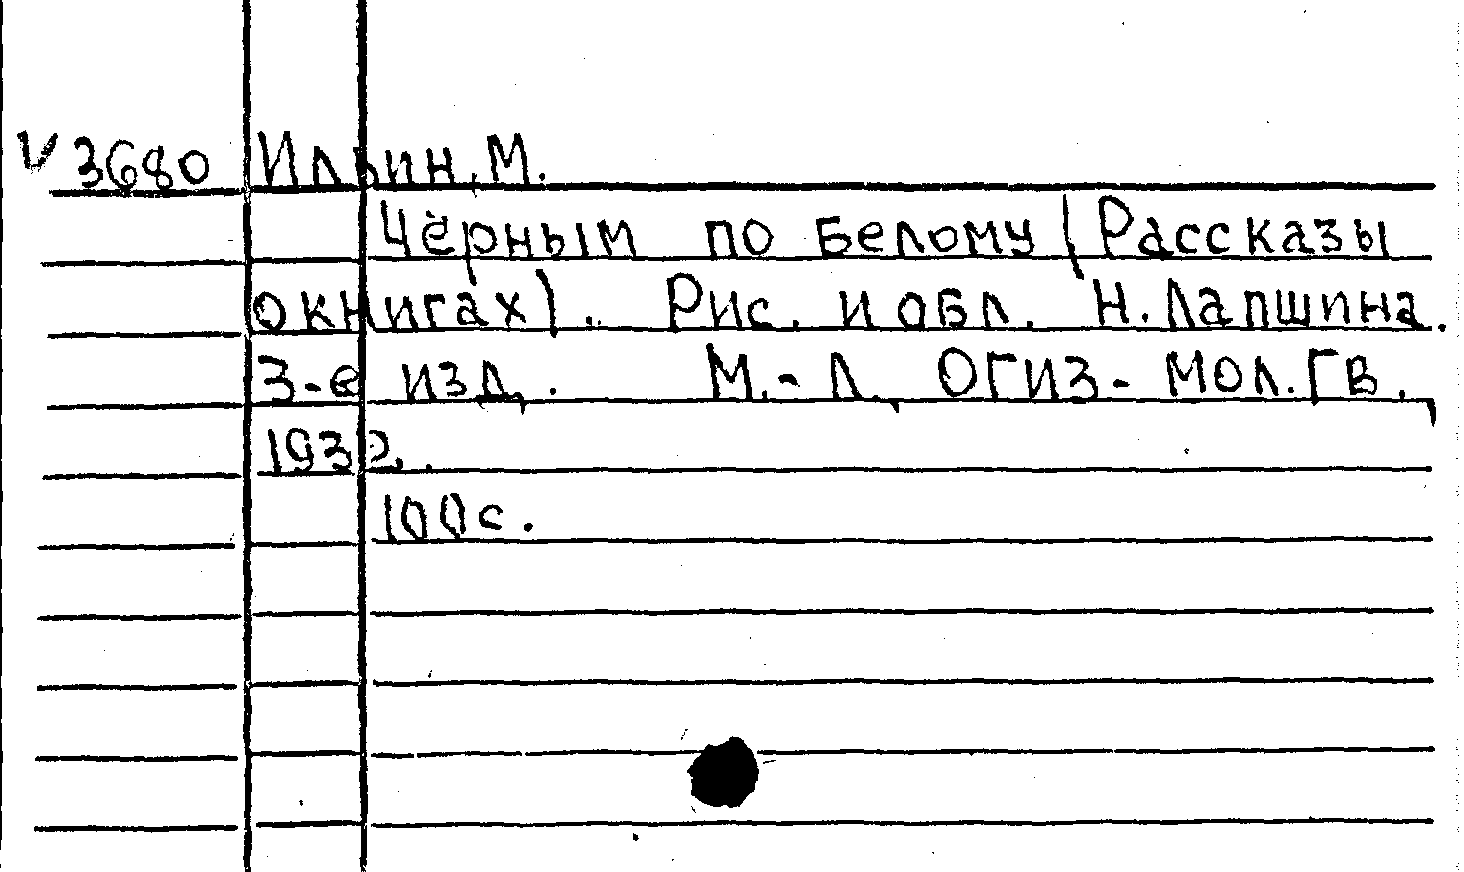 V 3680 Ильин, М.
Чёрным по белому (Рассказы
о книгах). Рис. и обл. Н. Лапшина.
3-е изд. М.-Л., ОГИЗ- Мол. Гв.,
1932.
100 с.